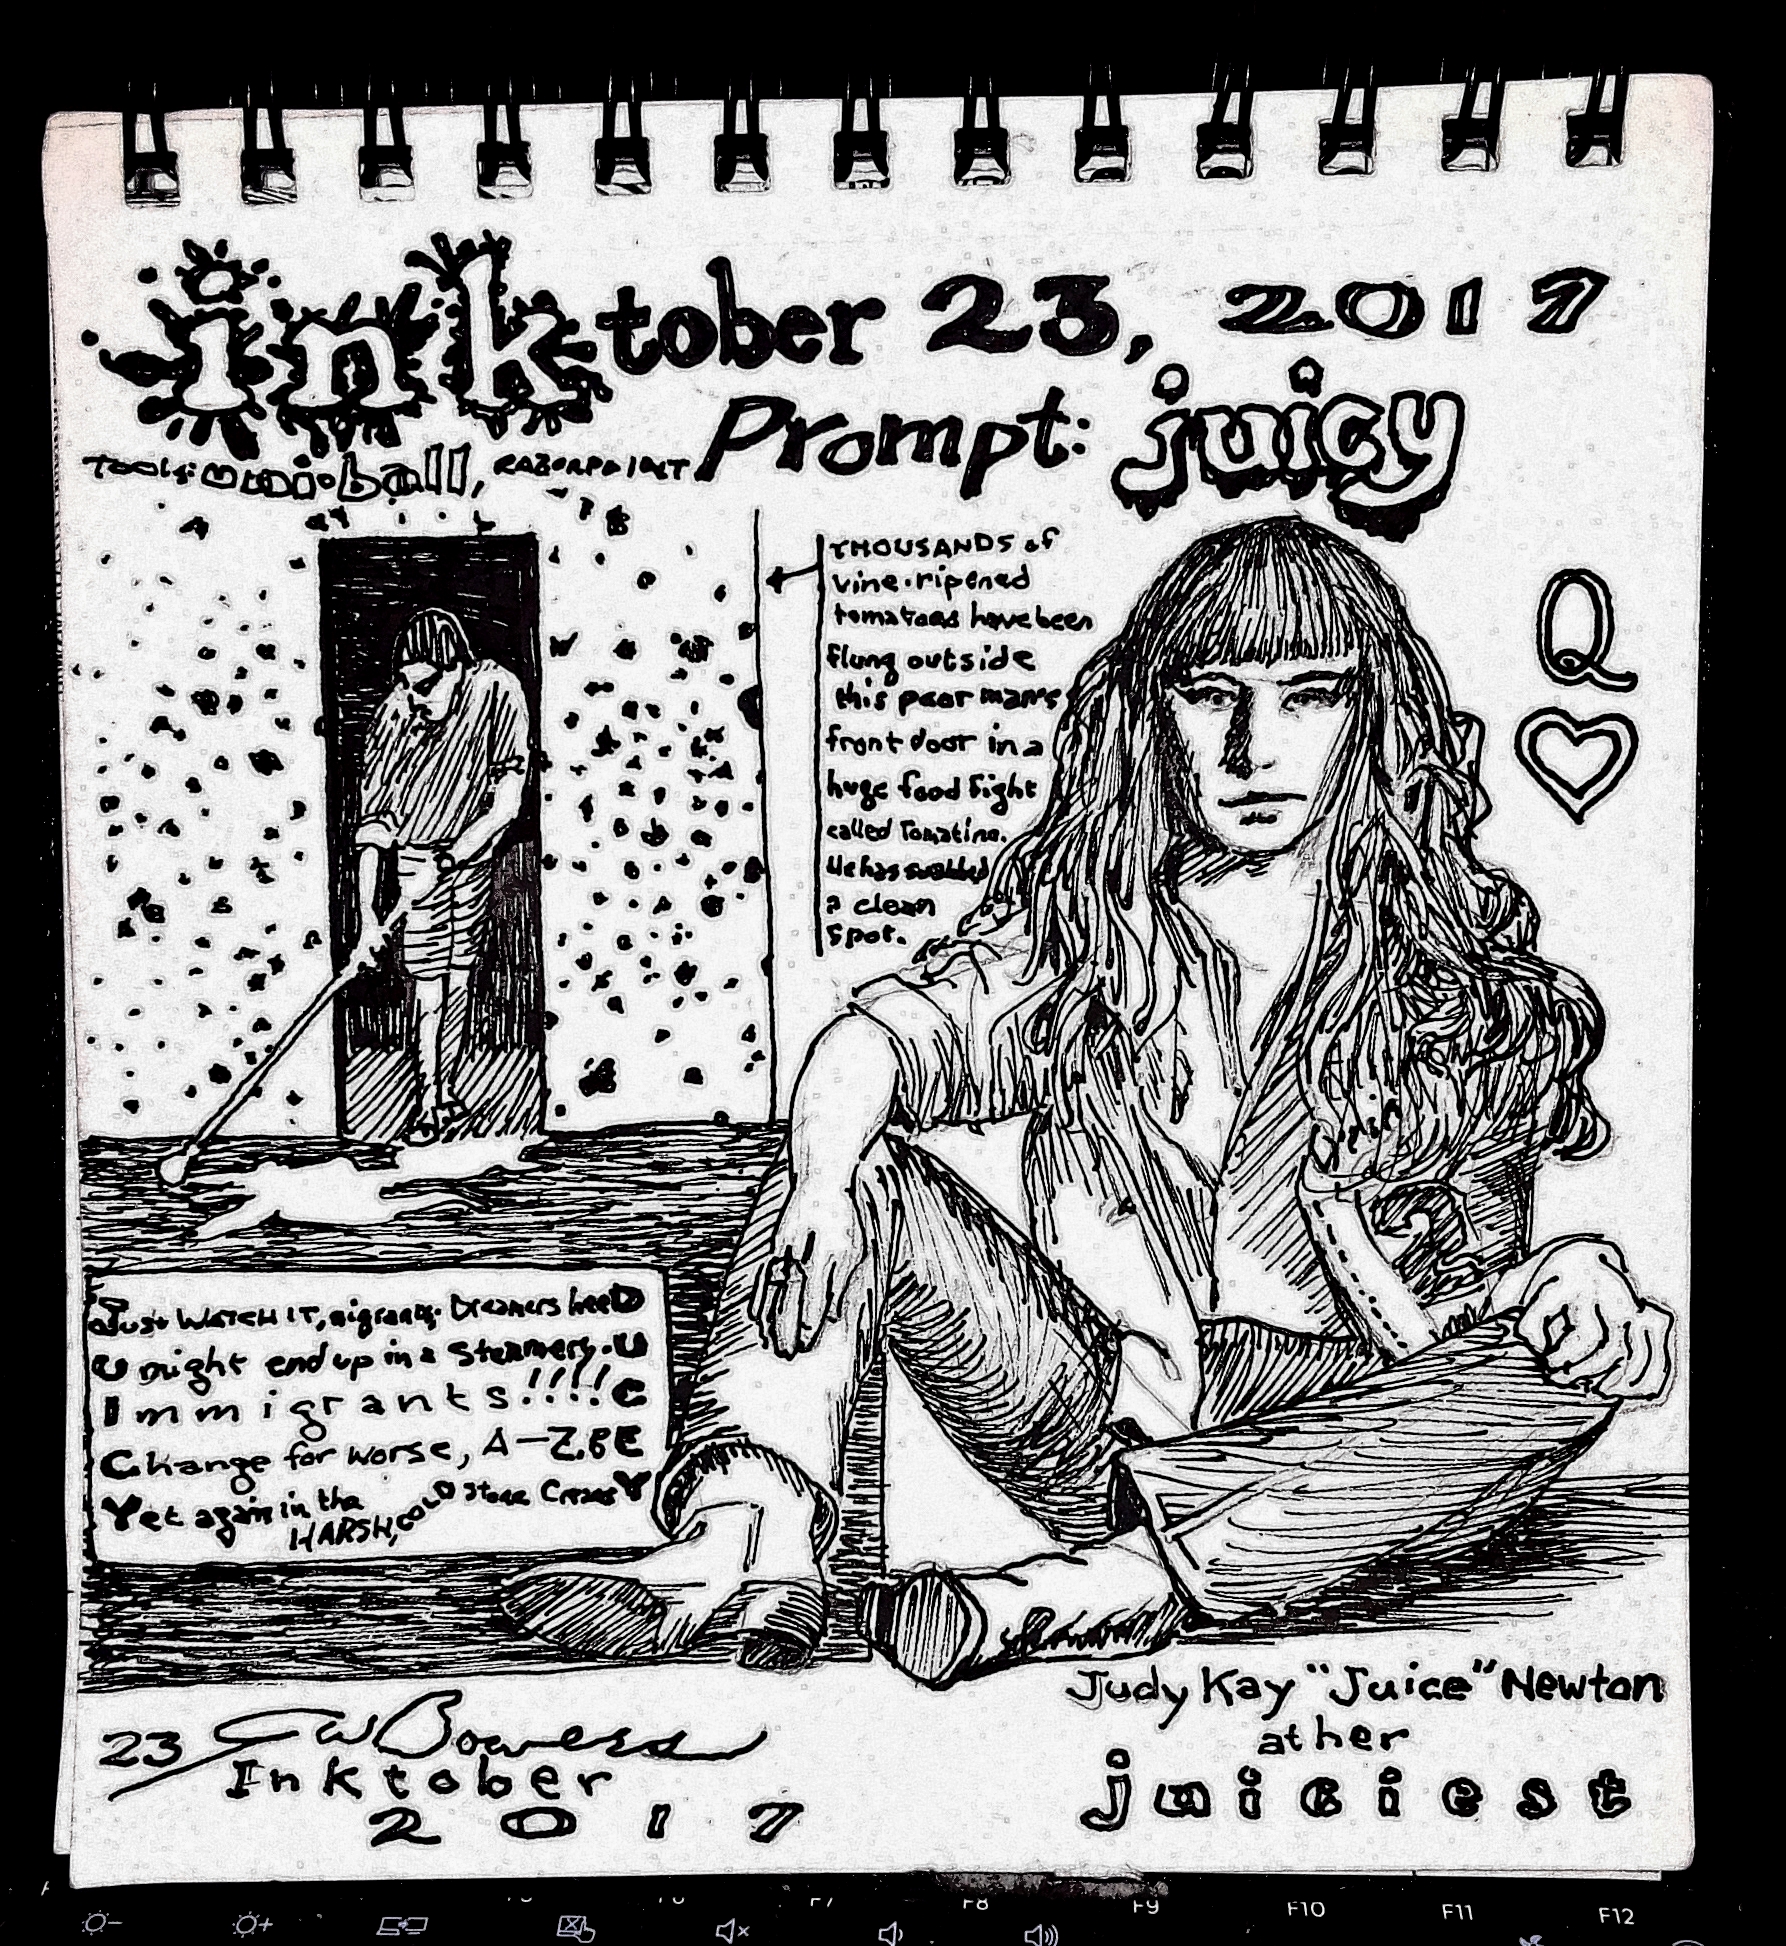 inktober 23, 2017
Prompt: juicy
Tools: uni-ball, RAZORPOINT
THOUSANDS of
vine-ripened
tomatoes have been
flung outside
this poor man's
front door in a
huge food fight
called Tomatina.
He has swabbed
a clean
spot.
Q
Just WATCH IT, migrants. Dreamers
U might end up in a Steamery. U
Immigrants!!!! C
Change for worse, A-Z, BE
Yet again in the
HARSH, COLD Stone Creamery
Judy Kay "Juice" Newton
at her
juiciest
23 GW Bowers
Inktober
2017
F7 F8 F9 F10 F11 F12